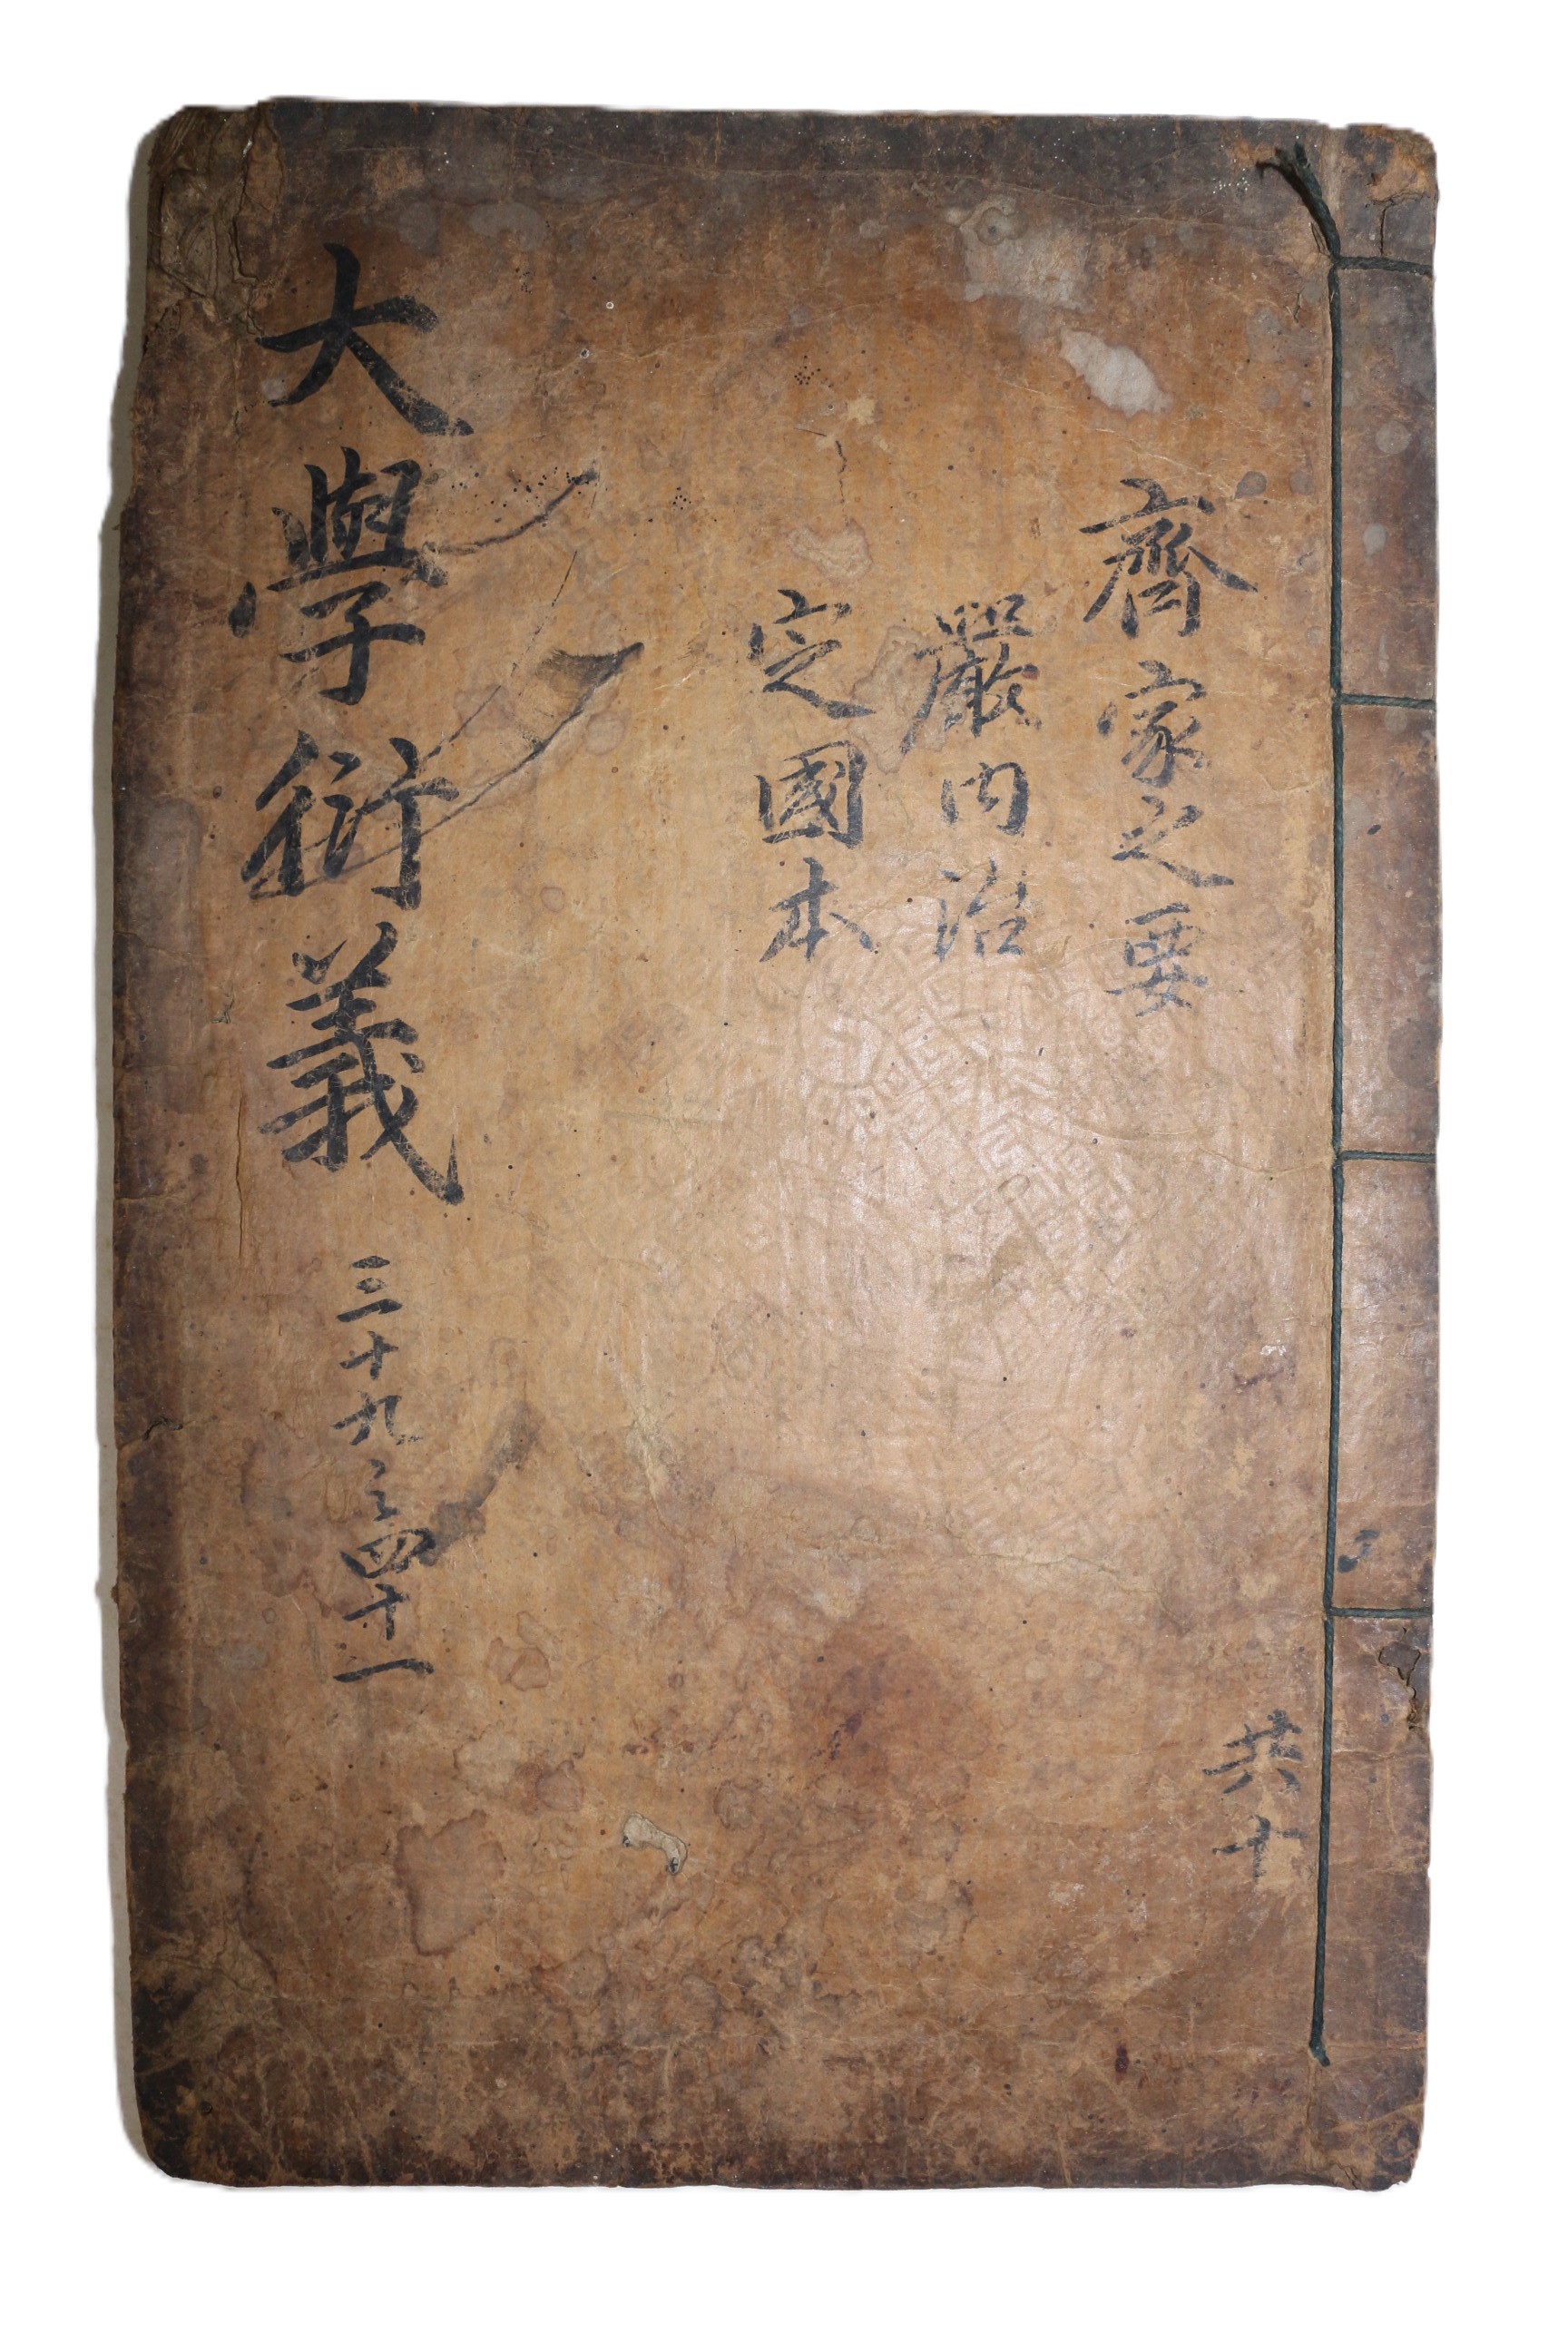 齊家之要
嚴內治
定國本
大學衍義 三十九之四十一
共十